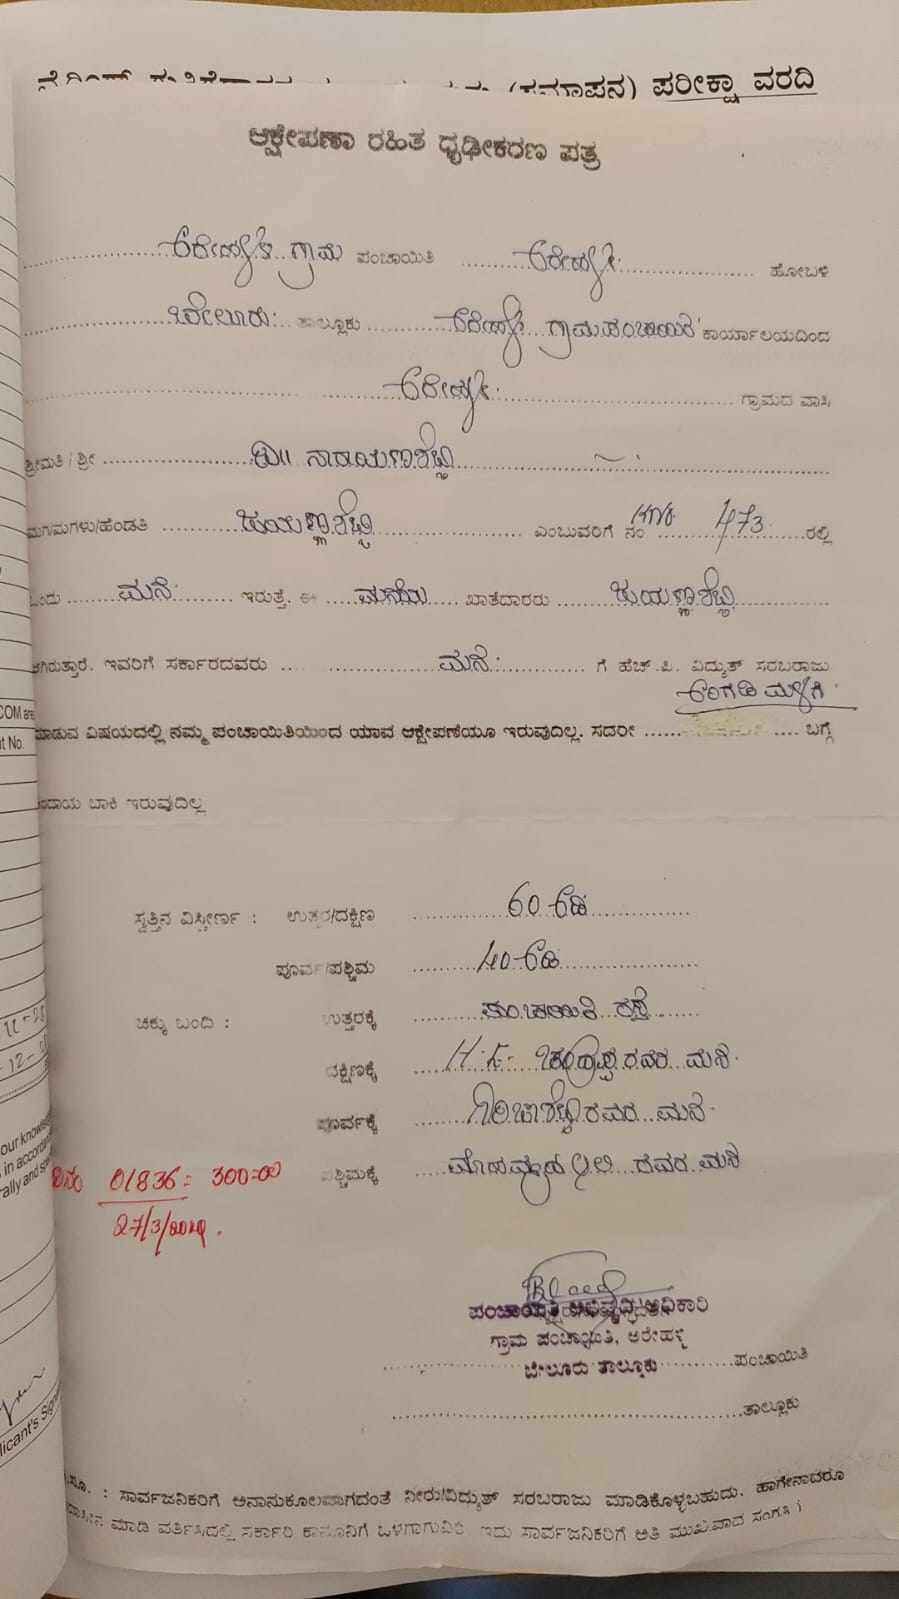 (ಸಮಾಪನ) ಪರೀಕ್ಷಾ ವರದಿ
ಆಕ್ಷೇಪಣಾ ರಹಿತ ಧೃಢೀಕರಣ ಪತ್ರ
ಅರೇಹಳ್ಳಿ ಗ್ರಾಮ ಪಂಚಾಯಿತಿ ಅರೇಹಳ್ಳಿ ಹೋಬಳಿ
ಬೇಲೂರು ತಾಲ್ಲೂಕು ಅರೇಹಳ್ಳಿ ಗ್ರಾಮಪಂಚಾಯಿತಿ ಕಾರ್ಯಾಲಯದಿಂದ
ಅರೇಹಳ್ಳಿ ಗ್ರಾಮದ ವಾಸಿ
ಶ್ರೀಮತಿ / ಶ್ರೀ ನಾರಾಯಣಶೆಟ್ಟಿ
ಮಗ/ಮಗಳು/ಹೆಂಡತಿ ಎಂಬುವರಿಗೆ ನಂ 473 ರಲ್ಲಿ
ಒಂದು ಮನೆ ಇರುತ್ತೆ. ಈ ಮನೆಯ ಖಾತೆದಾರರು
ಆಗಿರುತ್ತಾರೆ. ಇವರಿಗೆ ಸರ್ಕಾರದವರು ಮನೆ ಗೆ ಹೆಚ್.ಪಿ. ವಿದ್ಯುತ್ ಸರಬರಾಜು
ಅಂಗಡಿ ಮಳಿಗೆ
ಮಾಡುವ ವಿಷಯದಲ್ಲಿ ನಮ್ಮ ಪಂಚಾಯಿತಿಯಿಂದ ಯಾವ ಆಕ್ಷೇಪಣೆಯೂ ಇರುವುದಿಲ್ಲ. ಸದರೀ ಬಗ್ಗೆ
ಕಂದಾಯ ಬಾಕಿ ಇರುವುದಿಲ್ಲ
ಸ್ವತ್ತಿನ ವಿಸ್ತೀರ್ಣ : ಉತ್ತರ/ದಕ್ಷಿಣ 60 ಅಡಿ
ಪೂರ್ವ/ಪಶ್ಚಿಮ 40 ಅಡಿ
ಚಕ್ಕು ಬಂದಿ : ಉತ್ತರಕ್ಕೆ ಪಂಚಾಯಿತಿ ರಸ್ತೆ
ದಕ್ಷಿಣಕ್ಕೆ ಚಂದ್ರಪ್ಪ ರವರ ಮನೆ
ಪೂರ್ವಕ್ಕೆ ರವರ ಮನೆ
01836 = 300=00 ಪಶ್ಚಿಮಕ್ಕೆ ರವರ ಮನೆ
ಪಂಚಾಯತಿ ಅಭಿವೃದ್ಧಿ ಅಧಿಕಾರಿ
ಗ್ರಾಮ ಪಂಚಾಯಿತಿ, ಅರೇಹಳ್ಳಿ
ಬೇಲೂರು ತಾಲ್ಲೂಕು ಪಂಚಾಯಿತಿ
ತಾಲ್ಲೂಕು
ಸಾರ್ವಜನಿಕರಿಗೆ ಅನಾನುಕೂಲವಾಗದಂತೆ ನೀರು/ವಿದ್ಯುತ್ ಸರಬರಾಜು ಮಾಡಿಕೊಳ್ಳಬಹುದು. ಹಾಗೇನಾದರೂ
ಮಾಡಿ ವರ್ತಿಸಿದಲ್ಲಿ ಸರ್ಕಾರಿ ಕಾನೂನಿಗೆ ಒಳಗಾಗುವಿರಿ. ಇದು ಸಾರ್ವಜನಿಕರಿಗೆ ಅತಿ ಮುಖ್ಯವಾದ ಸಂಗತಿ !